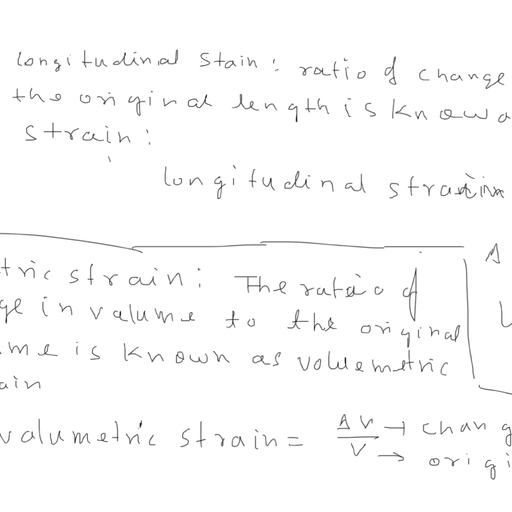 longitudinal stain : ratio of change
the original length is know a
strain :
longitudinal strain
tric strain : The ratio of
ge in valume to the original
me is known as voluemetric
ain
valumetric strain = ΔV/V → chang
→ origi
A